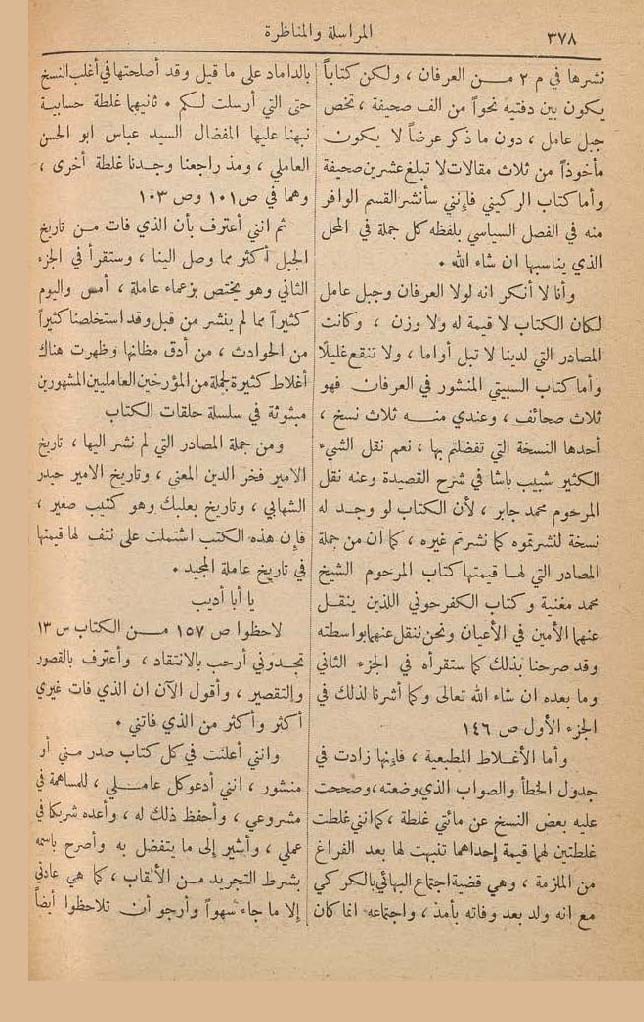 المراسلة والمناظرة
٣٧٨
نشرها في م ٢ من العرفان ، ولكن كتاباً
يكون بين دفتيه نحواً من الف صحيفة ، تخص
جبل عامل ، دون ما ذكر عرضاً لا يكون
مأخوذاً من ثلاث مقالات لا تبلغ عشرين صحيفة
وأما كتاب الركيني فإنني سأنشر القسم الوافر
منه في الفصل السياسي بلفظه كل جملة في المحل
الذي يناسبها ان شاء الله .
وأنا لا أنكر انه لولا العرفان وجبل عامل
لكان الكتاب لا قيمة له ولا وزن ، وكانت
المصادر التي لدينا لا تبل أواما ، ولا تنقع غليلًا
وأما كتاب السبيتي المنشور في العرفان فهو
ثلاث صحائف ، وعندي منه ثلاث نسخ ،
أحدها النسخة التي تفضلتم بها ، نعم نقل الشيء
الكثير شبيب باشا في شرح القصيدة وعنه نقل
المرحوم محمد جابر ، لأن الكتاب لو وجد له
نسخة لنشرتموه كما نشرتم غيره ، كما ان من جملة
المصادر التي لها قيمتها كتاب المرحوم الشيخ
محمد مغنية وكتاب الكفرحوني اللذين ينقل
عنهما الأمين في الأعيان ونحن ننقل عنهما بواسطته
وقد صرحنا بذلك كما ستقرأه في الجزء الثاني
وما بعده ان شاء الله تعالى وكما أشرنا لذلك في
الجزء الأول ص ١٤٦
وأما الأغلاط المطبعية ، فإنها زادت في
جدول الخطأ والصواب الذي وضعته ، وصححت
عليه بعض النسخ عن مائتي غلطة ، كما انني غلطت
غلطتين لهما قيمة إحداهما تنبهت لها بعد الفراغ
من الملزمة ، وهي قضية اجتماع البهائي بالكركي
مع انه ولد بعد وفاته بأمد ، واجتماعه انما كان
بالداماد على ما قيل وقد أصلحتها في أغلب النسخ
حتى التي أرسلت لكم . ثانيهما غلطة حسابية
نبهنا عليها المفضال السيد عباس ابو الحسن
العاملي ، ومذ راجعنا وجدنا غلطة أخرى ،
وهما في ص ١٠١ وص ١٠٣
ثم انني أعترف بأن الذي فات من تاريخ
الجبل أكثر مما وصل الينا ، وستقرأ في الجزء
الثاني وهو مختص بزعماء عاملة ، أمس واليوم
كثيراً مما لم ينشر من قبل وقد استخلصنا كثيراً
من الحوادث ، من أدق مظانها وظهرت هناك
أغلاط كثيرة لجملة من المؤرخين العامليين المشهورين
مبثوثة في سلسلة حلقات الكتاب
ومن جملة المصادر التي لم نشر اليها ، تاريخ
الامير فخر الدين المعني ، وتاريخ الامير حيدر
الشهابي ، وتاريخ بعلبك وهو كتيب صغير ،
فإن هذه الكتب اشتملت على نتف لها قيمتها
في تاريخ عاملة المجيد .
يا أبا أديب
لاحظوا ص ١٥٧ من الكتاب س ١٣
تجدوني أرحب بالانتقاد ، وأعترف بالقصور
والتقصير ، وأقول الآن ان الذي فات غيري
أكثر وأكثر من الذي فاتني .
وانني أعلنت في كل كتاب صدر مني أو
منشور ، انني أدعو كل عاملي ، للمساهمة في
مشروعي ، وأحفظ ذلك له ، وأعده شريكا في
عملي ، وأشير إلى ما يتفضل به وأصرح باسمه
بشرط التجريد من الألقاب ، كما هي عادتي
إلا ما جاء سهواً وأرجو أن تلاحظوا أيضاً